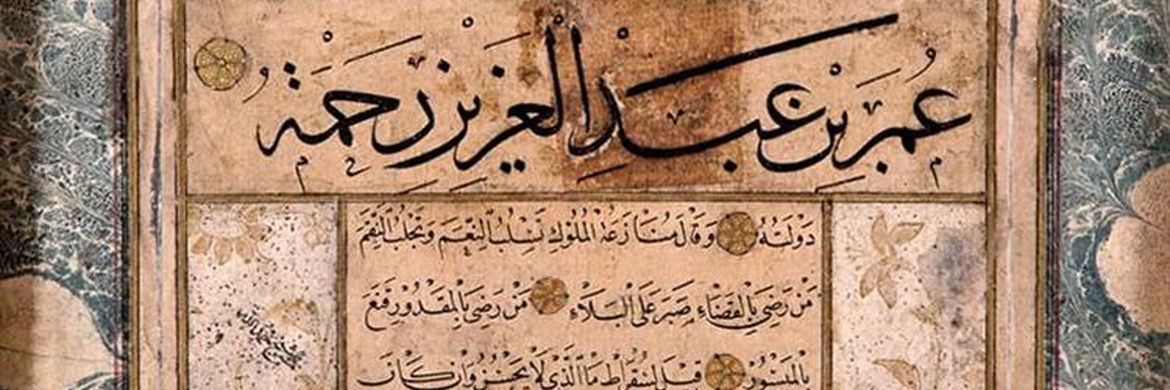 عمر بن عبد العزيز رحمة
دولته وقال منازعة الملوك تسلب النعم وتجلب النقم
من رضي بالقضاء صبر على البلاء من رضي بالمقدور قنع
بالميسور قيل لسقراط ما الذي لا يحسن وان كان